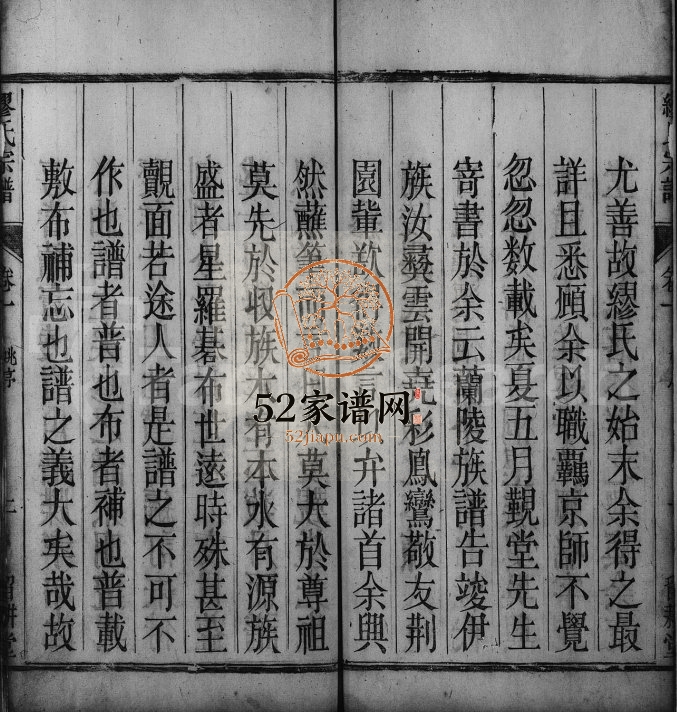 尤善故繆氏之始末余得之最
詳且悉顧余以職羈京師不覺
忽忽数載矣夏五月觀堂先生
寄書於余云蘭陵族譜告竣伊
族汝彛雲開堯彩鳳鸞敬友荆
園輩歉得
弁諸首余與
然蘸筆
莫大於尊祖
莫先於収族木有本水有源族
盛者星羅棊布世遠時殊甚至
覿面若途人者是譜之不可不
作也譜者普也布者補也普載
敷布補忘也譜之義大矣哉故
繆氏宗譜
卷一
52家谱网
52jiapu.com